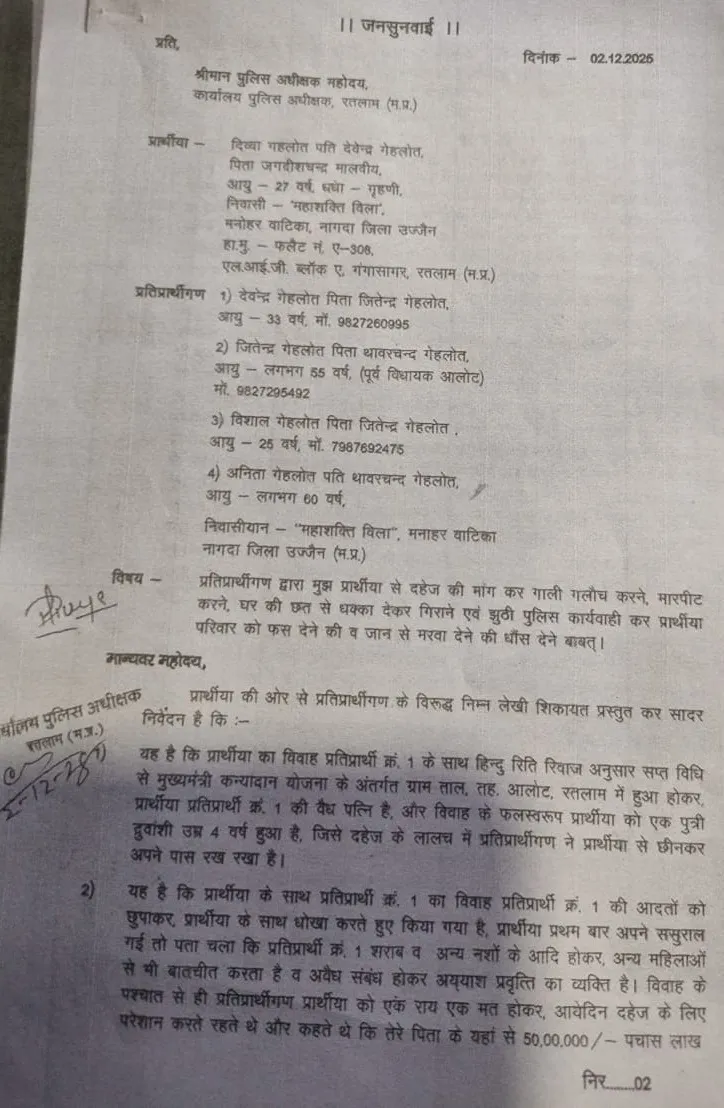 ।। जनसुनवाई ।।
प्रति,
दिनांक – 02.12.2025
श्रीमान पुलिस अधीक्षक महोदय,
कार्यालय पुलिस अधीक्षक, रतलाम (म.प्र.)
प्रार्थीया – दिव्या गहलोत पति देवेन्द्र गेहलोत,
पिता जगदीशचन्द्र मालवीय,
आयु – 27 वर्ष, धंधा – गृहणी,
निवासी – 'महाशक्ति विला',
मनोहर वाटिका, नागदा जिला उज्जैन
हा.मु. – फलैट नं. ए-308,
एल.आई.जी. ब्लॉक ए, गंगासागर, रतलाम (म.प्र.)
प्रतिप्रार्थीगण 1) देवेन्द्र गेहलोत पिता जितेन्द्र गेहलोत,
आयु – 33 वर्ष, मॉ. 9827260995
2) जितेन्द्र गेहलोत पिता थावरचन्द गेहलोत,
आयु – लगभग 55 वर्ष, (पूर्व विधायक आलोट)
मॉ. 9827295492
3) विशाल गेहलोत पिता जितेन्द्र गेहलोत ,
आयु – 25 वर्ष, मॉ. 7987692475
4) अनिता गेहलोत पति थावरचन्द गेहलोत,
आयु – लगभग 60 वर्ष,
निवासीयान – "महाशक्ति विला", मनाहर वाटिका
नागदा जिला उज्जैन (म.प्र.)
विषय – प्रतिप्रार्थीगण द्वारा मुझ प्रार्थीया से दहेज की मांग कर गाली गलौच करने, मारपीट
करने, घर की छत से धक्का देकर गिराने एवं झुठी पुलिस कार्यवाही कर प्रार्थीया
परिवार को फस देने की व जान से मरवा देने की धौंस देने बाबत्।
मान्यवर महोदय,
प्रार्थीया की ओर से प्रतिप्रार्थीगण के विरूद्ध निम्न लेखी शिकायत प्रस्तुत कर सादर
निवेदन है कि :–
पुलिस अधीक्षक
रतलाम (म.प्र.)
यह है कि प्रार्थीया का विवाह प्रतिप्रार्थी क्रं. 1 के साथ हिन्दु रिति रिवाज अनुसार सप्त विधि
से मुख्यमंत्री कन्यादान योजना के अंतर्गत ग्राम ताल, तह. आलोट, रतलाम में हुआ होकर,
प्रार्थीया प्रतिप्रार्थी क्रं. 1 की वैध पत्नि है, और विवाह के फलस्वरूप प्रार्थीया को एक पुत्री
द्रुवांशी उम्र 4 वर्ष हुआ है, जिसे दहेज के लालच में प्रतिप्रार्थीगण ने प्रार्थीया से छीनकर
अपने पास रख रखा है।
2) यह है कि प्रार्थीया के साथ प्रतिप्रार्थी क्रं. 1 का विवाह प्रतिप्रार्थी क्रं. 1 की आदतों को
छुपाकर, प्रार्थीया के साथ धोखा करते हुए किया गया है, प्रार्थीया प्रथम बार अपने ससुराल
गई तो पता चला कि प्रतिप्रार्थी क्रं. 1 शराब व अन्य नशों के आदि होकर, अन्य महिलाओं
से भी बातचीत करता है व अवैध संबंध होकर अय्याश प्रवृत्ति का व्यक्ति है। विवाह के
पश्चात से ही प्रतिप्रार्थीगण प्रार्थीया को एक राय एक मत होकर, आयेदिन दहेज के लिए
परेशान करते रहते थे और कहते थे कि तेरे पिता के यहां से 50,00,000/– पचास लाख
निर.......02